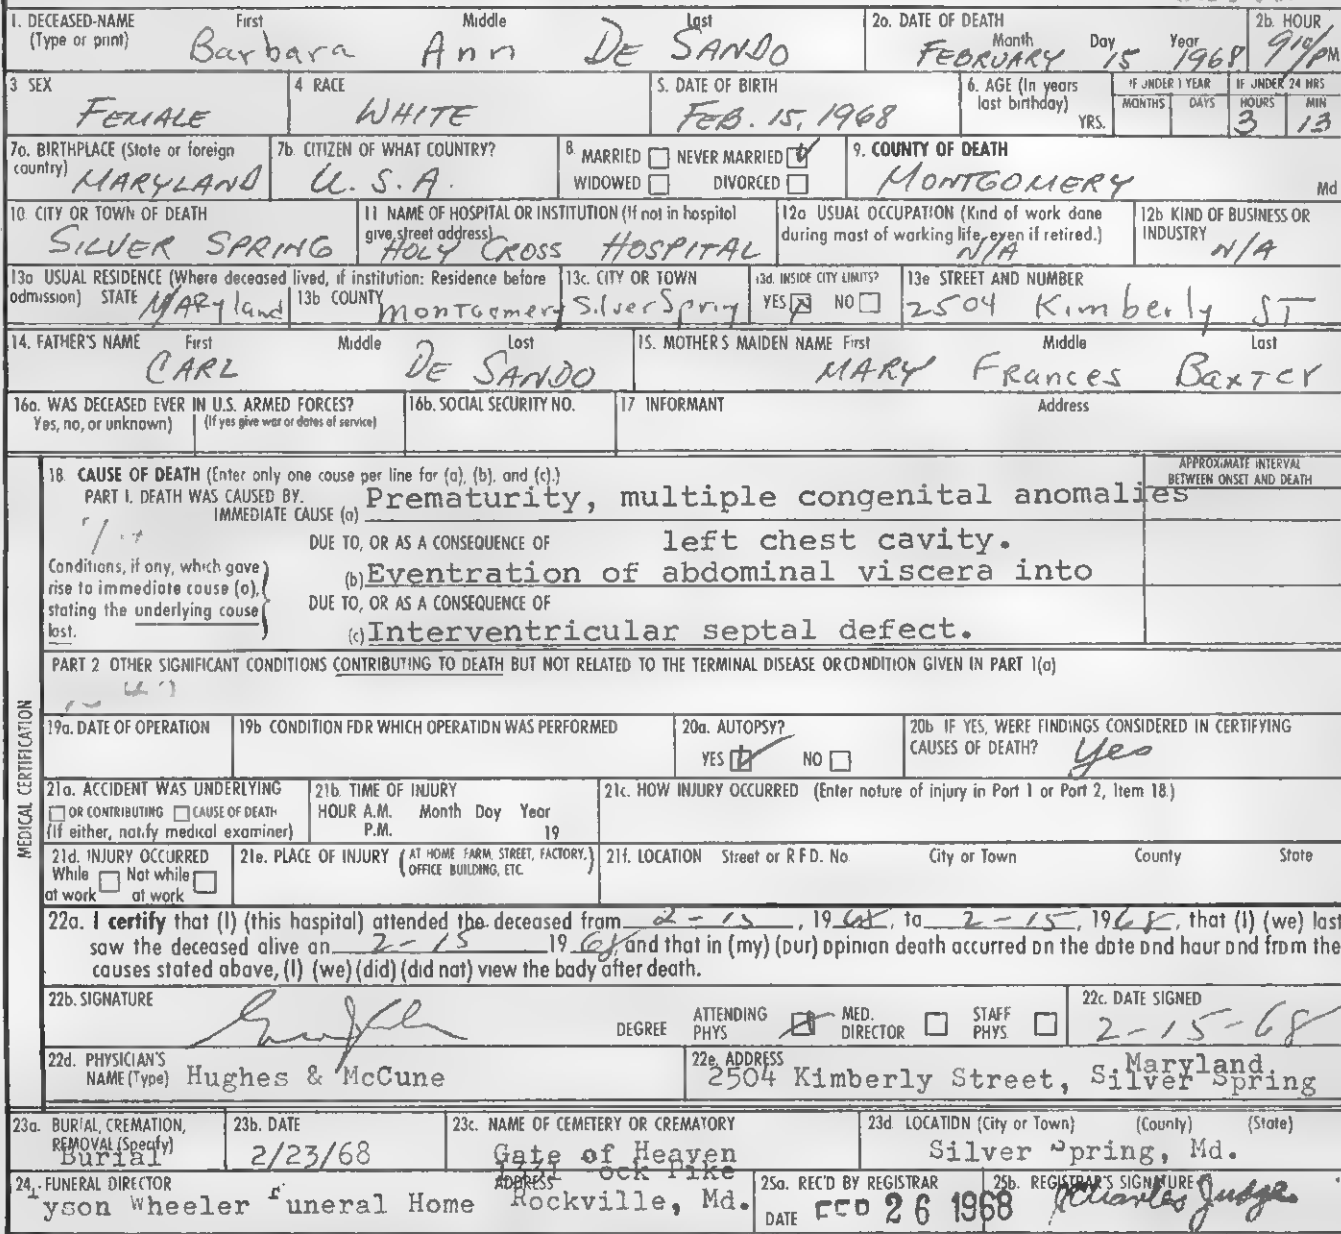 1. DECEASED-NAME First Middle Last
(Type or print) Barbara Ann DE SANDO
2a. DATE OF DEATH Month Day Year
FEBRUARY 15 1968
2b. HOUR
9 10/PM
3 SEX
FEMALE
4 RACE
WHITE
5. DATE OF BIRTH
FEB. 15, 1968
6. AGE (In years last birthday) YRS.
IF UNDER 1 YEAR MONTHS DAYS
IF UNDER 24 HRS HOURS MIN
3 13
7a. BIRTHPLACE (State or foreign country) MARYLAND
7b. CITIZEN OF WHAT COUNTRY?
U. S. A.
8. MARRIED NEVER MARRIED
WIDOWED DIVORCED
9. COUNTY OF DEATH
MONTGOMERY Md
10. CITY OR TOWN OF DEATH
SILVER SPRING
11 NAME OF HOSPITAL OR INSTITUTION (If not in hospital give street address)
HOLY CROSS HOSPITAL
12a USUAL OCCUPATION (Kind of work done during most of working life, even if retired.)
N/A
12b KIND OF BUSINESS OR INDUSTRY
N/A
13a USUAL RESIDENCE (Where deceased lived, if institution: Residence before admission) STATE MARyland
13b COUNTY Montgomery
13c. CITY OR TOWN
Silver Spring
13d. INSIDE CITY LIMITS?
YES NO
13e STREET AND NUMBER
2504 Kimberly ST
14. FATHER'S NAME First Middle Last
CARL DE SANDO
15. MOTHER'S MAIDEN NAME First Middle Last
MARY Frances Baxter
16a. WAS DECEASED EVER IN U.S. ARMED FORCES?
Yes, no, or unknown) (If yes give war or dates of service)
16b. SOCIAL SECURITY NO.
17 INFORMANT Address
MEDICAL CERTIFICATION
18. CAUSE OF DEATH (Enter only one cause per line for (a), (b), and (c).)
APPROXIMATE INTERVAL BETWEEN ONSET AND DEATH
PART I. DEATH WAS CAUSED BY.
IMMEDIATE CAUSE (a) Prematurity, multiple congenital anomalies
DUE TO, OR AS A CONSEQUENCE OF left chest cavity.
Conditions, if any, which gave rise to immediate cause (a), stating the underlying cause last.
(b) Eventration of abdominal viscera into
DUE TO, OR AS A CONSEQUENCE OF
(c) Interventricular septal defect.
PART 2 OTHER SIGNIFICANT CONDITIONS CONTRIBUTING TO DEATH BUT NOT RELATED TO THE TERMINAL DISEASE OR CONDITION GIVEN IN PART 1(a)
19a. DATE OF OPERATION
19b CONDITION FOR WHICH OPERATION WAS PERFORMED
20a. AUTOPSY?
YES NO
20b IF YES, WERE FINDINGS CONSIDERED IN CERTIFYING CAUSES OF DEATH? yes
21a. ACCIDENT WAS UNDERLYING
OR CONTRIBUTING CAUSE OF DEATH
(If either, notify medical examiner)
21b. TIME OF INJURY
HOUR A.M. Month Day Year
P.M. 19
21c. HOW INJURY OCCURRED (Enter nature of injury in Part 1 or Part 2, Item 18.)
21d. INJURY OCCURRED
While at work Not while at work
21e. PLACE OF INJURY (AT HOME FARM, STREET, FACTORY, OFFICE BUILDING, ETC.
21f. LOCATION Street or R F D. No City or Town County State
22a. I certify that (I) (this hospital) attended the deceased from 2-15, 1968, to 2-15, 1968, that (I) (we) last
saw the deceased alive on 2-15 1968, and that in (my) (our) opinion death occurred on the date and hour and from the
causes stated above, (I) (we) (did) (did not) view the body after death.
22b. SIGNATURE
DEGREE ATTENDING PHYS MED. DIRECTOR STAFF PHYS
22c. DATE SIGNED
2-15-68
22d. PHYSICIAN'S NAME (Type) Hughes & McCune
22e. ADDRESS Maryland.
2504 Kimberly Street, Silver Spring
23a. BURIAL, CREMATION, REMOVAL (Specify)
Burial
23b. DATE
2/23/68
23c. NAME OF CEMETERY OR CREMATORY
Gate of Heaven
23d LOCATION (City or Town) (County) (State)
Silver Spring, Md.
24. FUNERAL DIRECTOR
Tyson Wheeler Funeral Home
ADDRESS
1331 ock Pike
Rockville, Md.
25a. REC'D BY REGISTRAR
DATE FEB 26 1968
25b. REGISTRAR'S SIGNATURE
Charles Judge